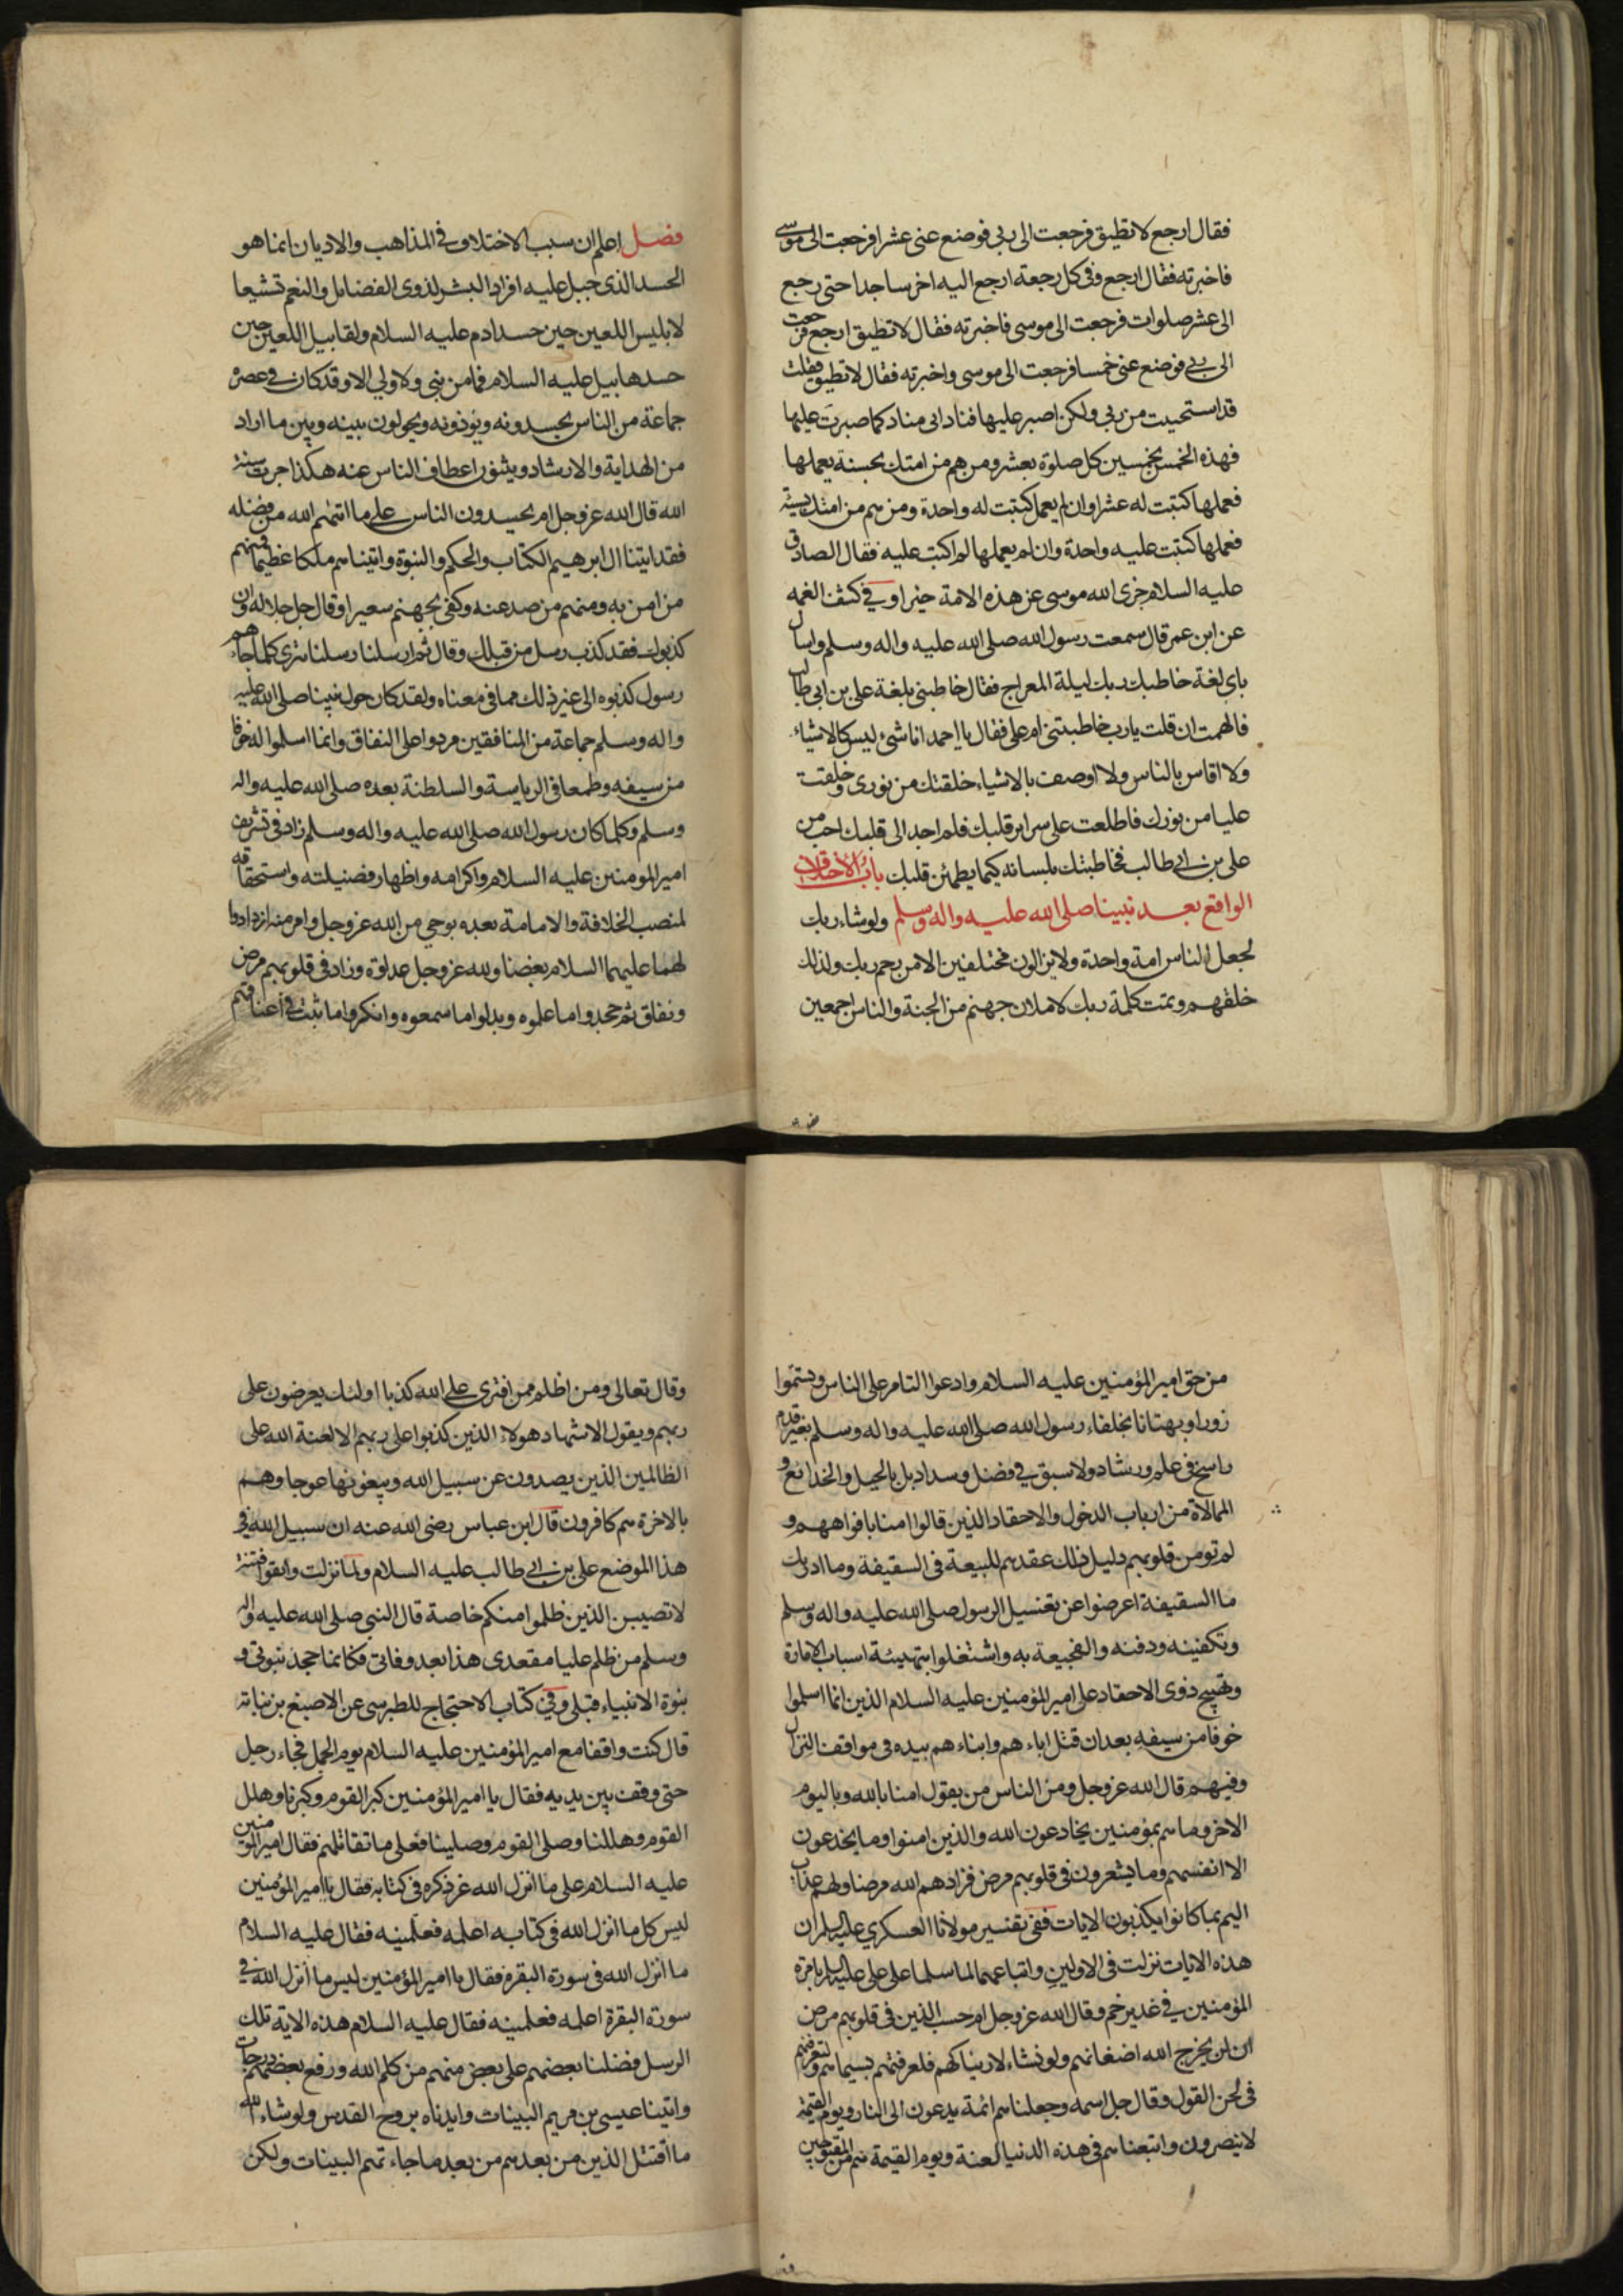 فقال ارجع لا تطيق فرجعت الى ربى فوضع عنى عشرا فرجعت الى موسى
فاخبرته فقال ارجع وفى كل رجعة ارجع اليه اخر ساجدا حتى رجع
الى عشر صلوات فرجعت الى موسى فاخبرته فقال لا تطيق ارجع فرجعت
الى ربى فوضع عنى خمسا فرجعت الى موسى واخبرته فقال لا تطيق فقلت
قد استحييت من ربى ولكن اصبر عليها فنادانى مناد كما صبرت عليها
فهذه الخمس بخمسين كل صلوة بعشر ومن هم من امتك بحسنة يعملها
فعملها كتبت له عشرا وان لم يعمل كتبت له واحدة ومن هم من امتك بسيئة
فعملها كتبت عليه واحدة وان لم يعملها لم اكتب عليه فقال الصادق
عليه السلام جزى الله موسى عن هذه الامة خيرا وفي كشف الغمه
عن ابن عمر قال سمعت رسول الله صلى الله عليه واله وسلم وسال
باى لغة خاطبك ربك ليلة المعراج فقال خاطبنى بلغة على بن ابى طالب
فالهمت ان قلت يا رب خاطبتنى ام على فقال يا احمد انا شئ ليس كالاشياء
ولا اقاس بالناس ولا اوصف بالاشياء خلقتك من نورى وخلقت
عليا من نورك فاطلعت على سراير قلبك فلم اجد الى قلبك احب من
على بن ابي طالب فخاطبتك بلسانه كيما يطمئن قلبك باب الاختلاف
الواقع بعد نبينا صلى الله عليه واله وسلم ولو شاء ربك
لجعل الناس امة واحدة ولا يزالون مختلفين الا من رحم ربك ولذلك
خلقهم وتمت كلمة ربك لاملان جهنم من الجنة والناس اجمعين
فصل اعلم ان سبب الاختلاف في المذاهب والاديان انما هو
الحسد الذى جبل عليه افراد البشر لذوى الفضايل والنعم تشيعا
لابليس اللعين حين حسد ادم عليه السلام ولقابيل اللعين حين
حسد هابيل عليه السلام فما من نبى ولا ولي الا وقد كان في عصره
جماعة من الناس يحسدونه ويؤذونه ويحولون بينه وبين ما اراد
من الهداية والارشاد ويثنون اعطاف الناس عنه هكذا جرت سنة
الله قال الله عز وجل ام يحسدون الناس على ما اتيهم الله من فضله
فقد اتينا ال ابرهيم الكتاب والحكم والنبوة واتيناهم ملكا عظيما فمنهم
من امن به ومنهم من صد عنه وكفى بجهنم سعيرا وقال جل جلاله وان
كذبوك فقد كذب رسل من قبلك وقال ثم ارسلنا رسلنا تترى كلما جاءهم
رسول كذبوه الى غير ذلك مما فى معناه ولقد كان حول نبينا صلى الله عليه
واله وسلم جماعة من المنافقين مردوا على النفاق وانما اسلموا له خوفا
من سيفه وطمعا فى الرياسة والسلطنة بعده صلى الله عليه واله
وسلم وكلما كان رسول الله صلى الله عليه واله وسلم زاد فى تشريف
امير المومنين عليه السلام واكرامه واظهار فضيلته واستحقاقه
لمنصب الخلافة والامامة بعده بوحي من الله عز وجل وامر منه ازدادوا
لهما عليهما السلام بغضا ولله عز وجل عداوة وزاد فى قلوبهم مرض
ونفاق ثم جحدوا ما علموه وبدلوا ما سمعوه وانكروا ما ثبت في اعناقهم
من حق امير المؤمنين عليه السلام وادعوا التامر على الناس وتسموا
زورا وبهتانا بخلفاء رسول الله صلى الله عليه واله وسلم بغير قدم
راسخ فى علم ورشاد ولا سبق في فضل وسداد بل بالحيل والخدائع و
الممالاة من ارباب الدخول والاحقاد الذين قالوا امنا بافواههم و
لم تومن قلوبهم دليل ذلك عقدهم للبيعة فى السقيفة وما ادريك
ما السقيفة اعرضوا عن تغسيل الرسول صلى الله عليه واله وسلم
وتكفينه ودفنه والفجيعة به واشتغلوا بتهيئة اسباب الامارة
وتهييج ذوى الاحقاد على امير المؤمنين عليه السلام الذين انما اسلموا
خوفا من سيفه بعد ان قتل اباءهم وابناءهم بيده فى مواقف النزال
وفيهم قال الله عز وجل ومن الناس من يقول امنا بالله وباليوم
الاخر وما هم بمؤمنين يخادعون الله والذين امنوا وما يخدعون
الا انفسهم وما يشعرون فى قلوبهم مرض فزادهم الله مرضا ولهم عذاب
اليم بما كانوا يكذبون الايات ففى تفسير مولانا العسكري عليه السلم ان
هذه الايات نزلت فى الاولين واتباعهما لما سلما على على عليه السلم بامرة
المؤمنين في غدير خم وقال الله عز وجل ام حسب الذين فى قلوبهم مرض
ان لن يخرج الله اضغانهم ولو نشاء لاريناكهم فلعرفتهم بسيماهم ولتعرفنهم
فى لحن القول وقال جل اسمه وجعلناهم ائمة يدعون الى النار ويوم القيمة
لا ينصرون واتبعناهم فى هذه الدنيا لعنة ويوم القيمة هم من المقبوحين
وقال تعالى ومن اظلم ممن افترى على الله كذبا اولئك يعرضون على
ربهم ويقول الاشهاد هولاء الذين كذبوا على ربهم الا لعنة الله على
الظالمين الذين يصدون عن سبيل الله ويبغونها عوجا وهم
بالاخرة هم كافرون قال ابن عباس رضى الله عنه ان سبيل الله في
هذا الموضع على بن ابي طالب عليه السلام ولما نزلت واتقوا فتنة
لا تصيبن الذين ظلموا منكم خاصة قال النبى صلى الله عليه واله
وسلم من ظلم عليا مقعدى هذا بعد وفاتى فكانما جحد نبوتى و
نبوة الانبياء قبلى وفي كتاب الاحتجاج للطبرسى عن الاصبغ بن نباتة
قال كنت واقفا مع امير المؤمنين عليه السلام يوم الجمل فجاء رجل
حتى وقف بين يديه فقال يا امير المؤمنين كبر القوم وكبرنا وهلل
القوم وهللنا وصلى القوم وصلينا فعلى ما تقاتلهم فقال امير المومنين
عليه السلام على ما انزل الله عز ذكره فى كتابه فقال يا امير المؤمنين
ليس كل ما انزل الله فى كتابه اعلمه فعلمنيه فقال عليه السلام
ما انزل الله فى سورة البقرة فقال يا امير المؤمنين ليس ما انزل الله في
سورة البقرة اعلمه فعلمنيه فقال عليه السلام هذه الاية تلك
الرسل فضلنا بعضهم على بعض منهم من كلم الله ورفع بعضهم درجات
واتينا عيسى بن مريم البينات وايدناه بروح القدس ولو شاء الله
ما اقتتل الذين من بعدهم من بعد ما جاءتهم البينات ولكن